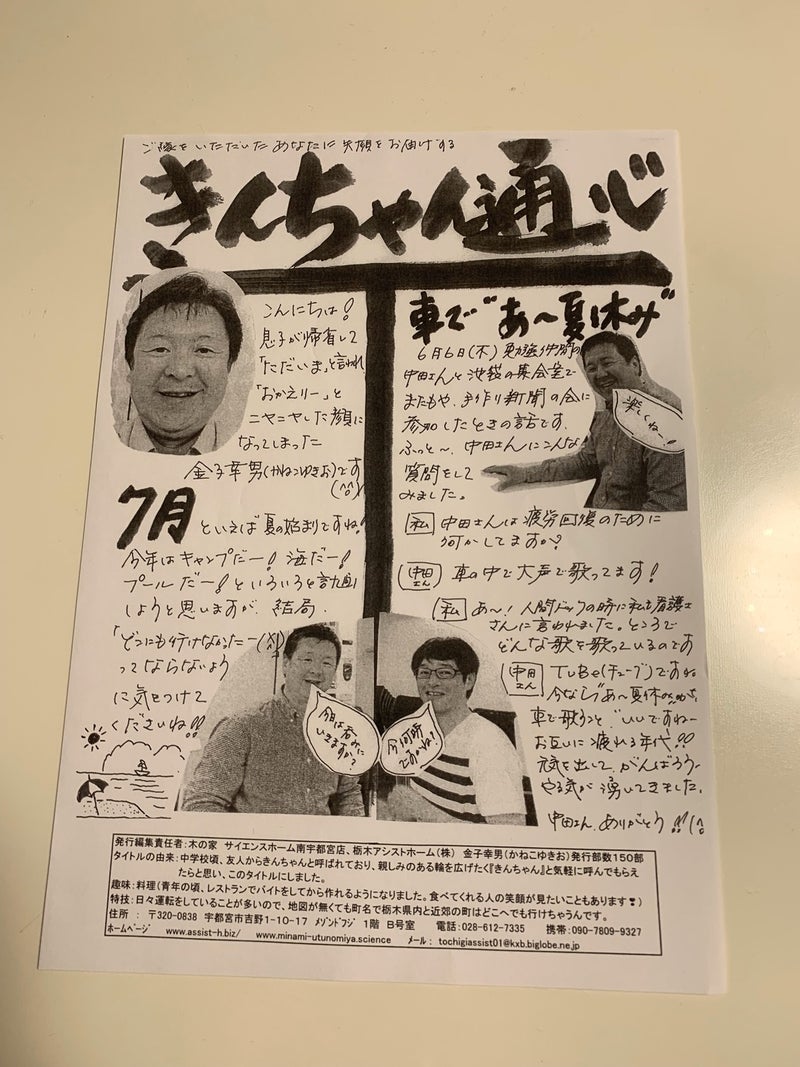 ご縁をいただいた あなたに 笑顔を お届けする
きんちゃん通心
こんにちは!
息子が帰省して
「ただいま」と言われ
「おかえりー」と
ニヤニヤした顔に
なってしまった
金子幸男(かねこゆきお)です
(^^)
7月といえば 夏の始まりですね!
今年はキャンプだー! 海だー!
プールだー!といろいろと計画
しようと思いますが、結局、
「どこにも行けなかったー
ってならないよう
に気をつけて
くださいね!!
今日は呑みに
いきますか?
今何時
ですかね?
車で"あ〜夏休み"
6月6日(木)
中田さんと池袋の集会室で
またもや、手作り新聞の会に
参加したときの話です。
ふっと〜、中田さんにこんな
質問をして
みました。
楽しくね〜!!
私 中田さんは疲労回復のために
何かしてますか?
中田さん 車の中で大声で歌ってます!
私 あ〜!人間ドックの時に私も看護士
さんに言われました。ところで
どんな歌を歌っているのです
中田さん TUBe(チューブ)ですね
今なら『あ〜夏休み』
車で歌うと"いいですねー
お互いに疲れる年代!!
元気を出して、がんばろう
やる気が湧いてきました。
中田さん、ありがとう!!
発行編集責任者:木の家 サイエンスホーム南宇都宮店、栃木アシストホーム(株) 金子幸男(かねこゆきお)発行部数150部
タイトルの由来:中学校頃、友人からきんちゃんと呼ばれており、親しみのある輪を広げたく『きんちゃん』と気軽に呼んでもらえ
たらと思い、このタイトルにしました。
趣味:料理(青年の頃、レストランでバイトをしてから作れるようになりました。食べてくれる人の笑顔が見たいこともあります❢)
特技:日々運転をしていることが多いので、地図が無くても町名で栃木県内と近郊の町はどこへでも行けちゃうんです。
住所 : 〒320-0838 宇都宮市吉野1-10-17 メゾンドフジ 1階 B号室 電話:028-612-7335 携帯:090-7809-9327
ホームページ www.assist-h.biz/ www.minami-utunomiya.science メール: tochigiassist01@kxb.biglobe.ne.jp